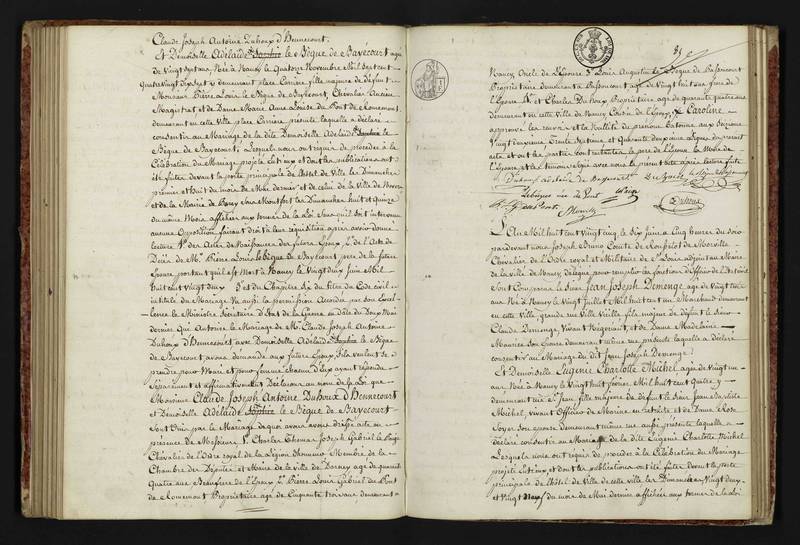 Claude Joseph Antoine Duhoux d'Hennecourt.
Et Demoiselle Adélaïde Sophie le Bègue de Bayécourt agée
de Vingt sept ans, Née à Nancy le Quatorze Novembre Mil Sept cent
Quatre vingt dix sept y demeurant place Carrière fille majeure de Défunt
Monsieur Pierre Louis le Bègue de Bayecourt, Chevalier Ancien
Magistrat et de Dame Marie Anne Louise du Pont de Romemont
demeurant en cette Ville place Carrière présente laquelle a déclaré
consentir au Mariage de la dite Demoiselle Adélaïde Sophie le
Bègue de Bayecourt; Lesquels nous ont requis de procéder à la
Célébration du Mariage projetté entr'eux et dont les publications ont
été faites devant la porte principale de l'hôtel de Ville les Dimanches
premier et huit du mois de Mai dernier et de celui de la Ville de
et de la Mairie de sous Montfort les Dimanches huit et quinze
du même Mois affichées aux termes de la Loi. Sans qu'il soit intervenu
aucune Opposition faisant droit à leur requisition après avoir donné
lecture 1° des Actes de Naissance des futurs Epoux 2° de l'Acte de
Décès de Mr Pierre Louis le Bègue de Bayecourt père de la future
Epouse portant qu'il est Mort à Nancy le Vingt deux Juin Mil
huit cent Vingt deux 3° et du Chapitre Six du titre du Code civil
intitulé du Mariage Vu aussi la permission Accordée par son Excel-
-lence le Ministre Secrétaire d'Etat de la Guerre en date du Douze Mai
dernier Qui Autorise le Mariage de Mr Claude Joseph Antoine
Duhoux d'Hennecourt avec Demoiselle Adélaïde Sophie le Bègue
de Bayecourt avons demandé aux futurs Epoux s'ils veulent se
prendre pour Mari et pour femme chacun d'eux ayant répondu
séparément et affirmativement Déclarons au nom de la Loi que
Monsieur Claude Joseph Antoine Duhoux d'Hennecourt
et Demoiselle Adélaïde Sophie le Bègue de Bayecourt
sont Unis par le Mariage de quoi avons avons dressé acte en
présence de Messieurs 1° Charles Thomas Joseph Gabriel le
Chevalier de l'Ordre royal de la Légion d'honneur Membre de la
Chambre des Députés et Maire de la Ville de Darney agé de quarante
Quatre ans Beaufrère de l'Epoux 2° Pierre Louis Gabriel du Pont
de Romemont Propriétaire agé de Cinquante trois ans demeurant à
Nancy, Oncle de l'Epouse 3° Louis Augustin le Bègue de
Propriétaire demeurant à agé de Vingt huit ans frère de
l'Epouse 4° et Charles Duhoux Propriétaire agé de quarante quatre ans
demeurant en cette Ville de Nancy Cousin de l'Epoux Caroline
approuvé les ratures et la Nullité du prénom Batonné aux dixième
Vingt deuxième Trente septième et Quarante deuxième lignes du présent
acte et ont les parties contractantes le père de l'Epoux la Mère de
l'Epouse et les témoins signé avec nous le présent acte après lecture faite
Duhoux
Duhoux
L'An Mil huit cent Vingt cinq le Six Juin à Cinq heures du Soir
pardevant nous Joseph Bruno Comte de
Chevalier de l'Ordre royal et Militaire de St Louis adjoint au Maire
de la Ville de Nancy délégué pour remplir les fonctions d'Officier de l'Etat civil
sont Comparus le Sieur Jean Joseph Demenge agé de Vingt trois
ans Né à Nancy le Vingt Juillet Mil huit cent un Marchand demeurant
en cette Ville grande rue Ville Vieille fils majeur de défunt le Sieur
Claude Demenge, Vivant Négociant, et de Dame Madelaine
son Epouse demeurant même rue présente laquelle a déclaré
consentir au Mariage du dit Jean Joseph Demenge.
Et Demoiselle Eugenie Charlotte Michel agée de Vingt un
ans Née à Nancy le Vingt huit février Mil huit cent Quatre y
demeurant rue St Jean fille majeure de défunt le Sieur Jean Baptiste
Michel, vivant Officier de Marine en retraite et de Dame Rose
Noyer son épouse demeurant même rue aussi présente laquelle a
déclaré consentir au Mariage de la dite Eugenie Charlotte Michel
Lesquels nous ont requis de procéder à la Célébration du Mariage
projetté entr'eux et dont les publications ont été faites devant la porte
principale de l'hôtel de Ville de cette ville les Dimanches Vingt deux
et Vingt Neuf du mois de Mai dernier affichées aux termes de la Loi